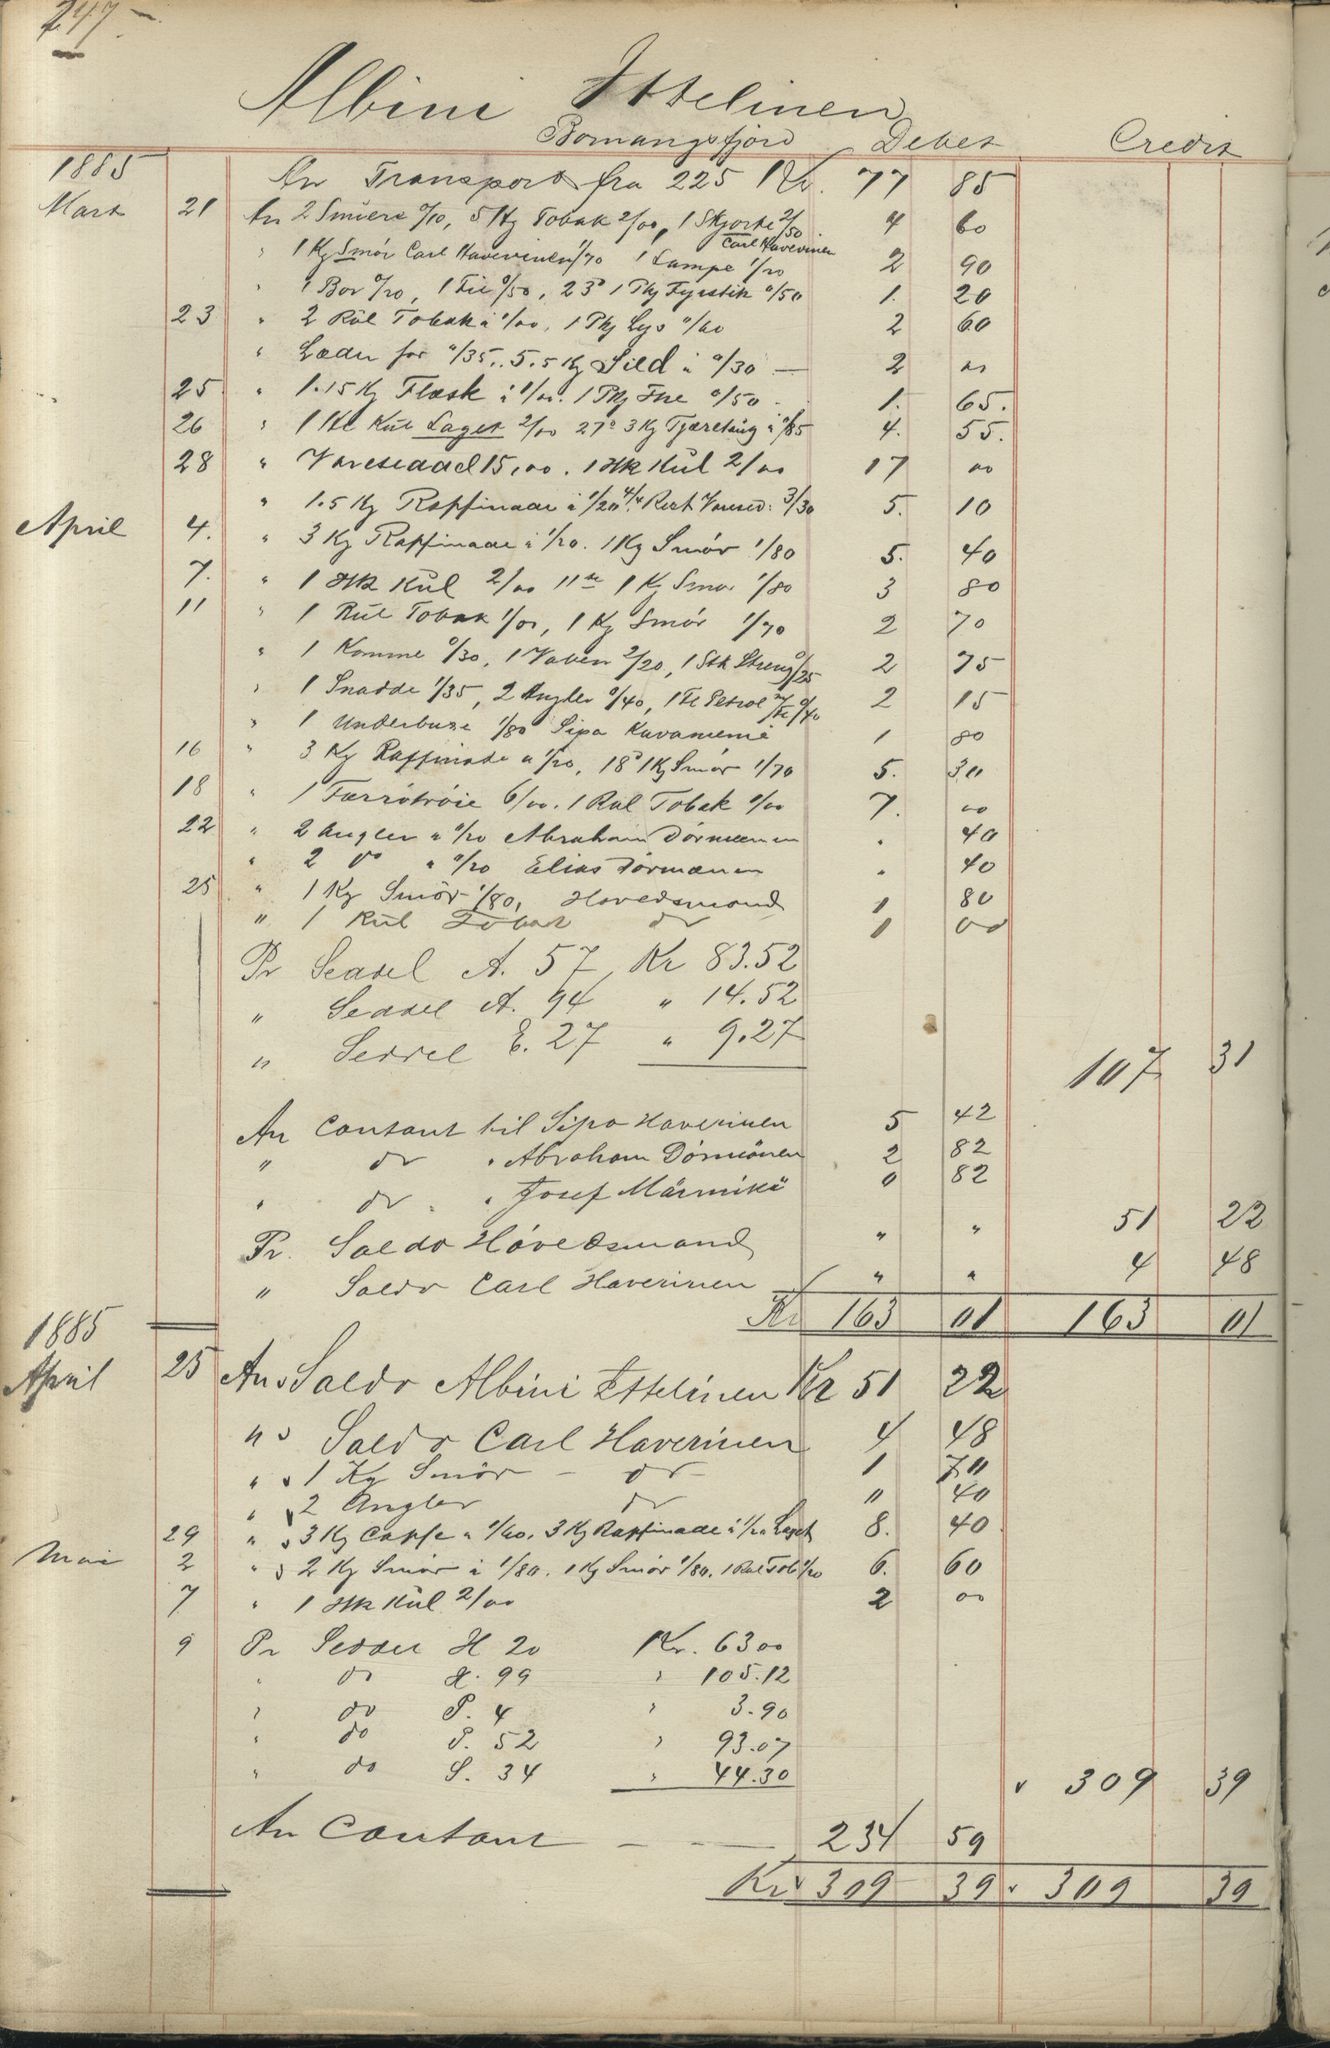 247
Albini Ittelinen
Bomangsfjord Debet Credit
1885 An Transport fra 225 Kr. 77 85
Mart 21 An 2 Smøere 0/10, 5 Kg Tobak 2/00, 1 Skjorte 2/50 4 60
Carl Haverinen
" 1 Kg Smør Carl Haverinen 1/70 1 Lampe 1/20 2 90
" 1 Bor 0/20, 1 Fil 0/50, 23d 1 Pkj Fyrstik 0/50 1. 20
23 " 2 Rul Tobak à 1/00, 1 Pkj Lys 0/60 2 60
" Læder for 0/35. 5.5 Kg Sild à 0/30 — 2 00
25 " 1.15 Kg Flæsk à 1/00. 1 Pkj The 0/50 1. 65.
26 " 1 Hl Kul Laget 2/00 27d 3 Kg Tjæretaug à 0/85 4. 55.
28 " Vareseddel 15,00. 1 Hk Kul 2/00 17 00
" 1.5 Kg Raffinade à 1/20 4/4 Varesed: 3/30 5. 10
April 4. " 3 Kg Raffinade à 1/20. 1 Kg Smør 1/80 5. 40
7. " 1 Hk Kul 2/00 11te 1 Kg Smør 1/80 3 80
11 " 1 Rul Tobak 1/00, 1 Kg Smör 1/70 2 70
" 1 Komme 0/30, 1 2/20, 1 Stk Streng 0/25 2 75
" 1 Snadde 1/35, 2 Angler 0/40, 1 Fl Petrol 0/40 2 15
" 1 Underbuxe 1/80 Sipa 1 80
16 " 3 Kg Raffinade a 1/20, 18d 1 Kg Smör 1/70 5. 30
18 " 1 Færötröie 6/00. 1 Rul Tobak 1/00 7. 00
22 " 2 Angler a 0/20 Abraham Dörmænen " 40
" 2 do a 0/20 Elias Dörmænen " 40
25 " 1 Kg Smör 1/80, Hovedsmand 1 80
" 1 Rul Tobak do 1 00
Pr Seddel A. 57 Kr 83.52
" Seddel A. 94 " 14.52
" Seddel E. 27 " 9.27
107 31
An Contant til Sipa Haverinen 5 42
" do " Abraham Dörmänen 2 82
" do " Josef Märmikä 0 82
Pr. Saldo Hovedsmand " " 51 22
" Saldo Carl Haverinen " " 4 48
Kr 163 01 163 01
1885
April 25 An Saldo Albini Ittelinen Kr 51 22
" Saldo Carl Haverinen 4 48
" 1 Kg Smör — do — 1 70
" 2 Angler do " 40
29 " 3 Kg Caffe a 1/60. 3 Kg Raffinade à 1/20 Laget 8. 40
Mai 2 " 2 Kg Smör à 1/80. 1 Kg Smör 1/80. 1 Rul Tob 1/20 6. 60
7 " 1 Hk Kul 2/00 2 00
9 Pr Seddel H 20 Kr. 63 00
" do H. 99 " 105.12
" do P. 4 " 3.90
" do P. 52 " 93.07
" do S. 34 " 44.30
309 39
An Contant — — 234 59
Kr 309 39 309 39